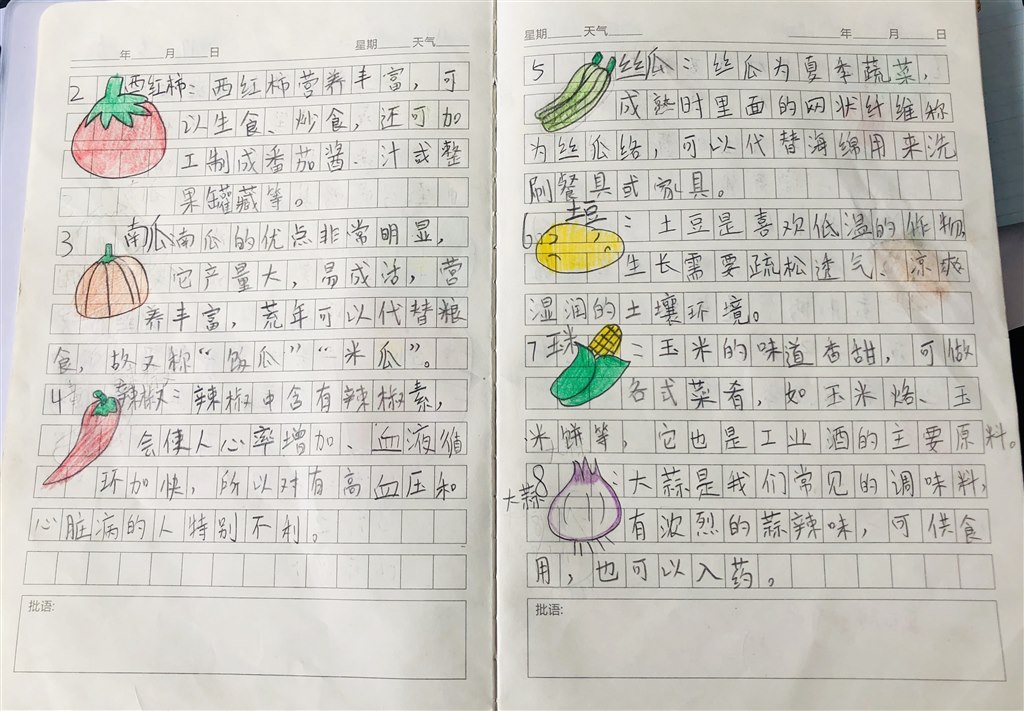 年 月 日 星期 天气
2 西红柿：西红柿营养丰富，可
以生食、炒食，还可加
工制成番茄酱、汁或整
果罐藏等。
3 南瓜南瓜的优点非常明显，
它产量大，易成活，营
养丰富，荒年可以代替粮
食，故又称“饭瓜”“米瓜”。
4 辣椒：辣椒中含有辣椒素，
会使人心率增加、血液循
环加快，所以对有高血压和
心脏病的人特别不利。
批语:
星期 天气 年 月 日
5 丝瓜：丝瓜为夏季蔬菜，
成熟时里面的网状纤维称
为丝瓜络，可以代替海绵用来洗
刷餐具或家具。
6 土豆：土豆是喜欢低温的作物，
生长需要疏松透气、凉爽
湿润的土壤环境。
7 玉米：玉米的味道香甜，可做
各式菜肴，如玉米烙、玉
米饼等，它也是工业酒的主要原料。
8 大蒜：大蒜是我们常见的调味料，
有浓烈的蒜辣味，可供食
用，也可以入药。
批语: